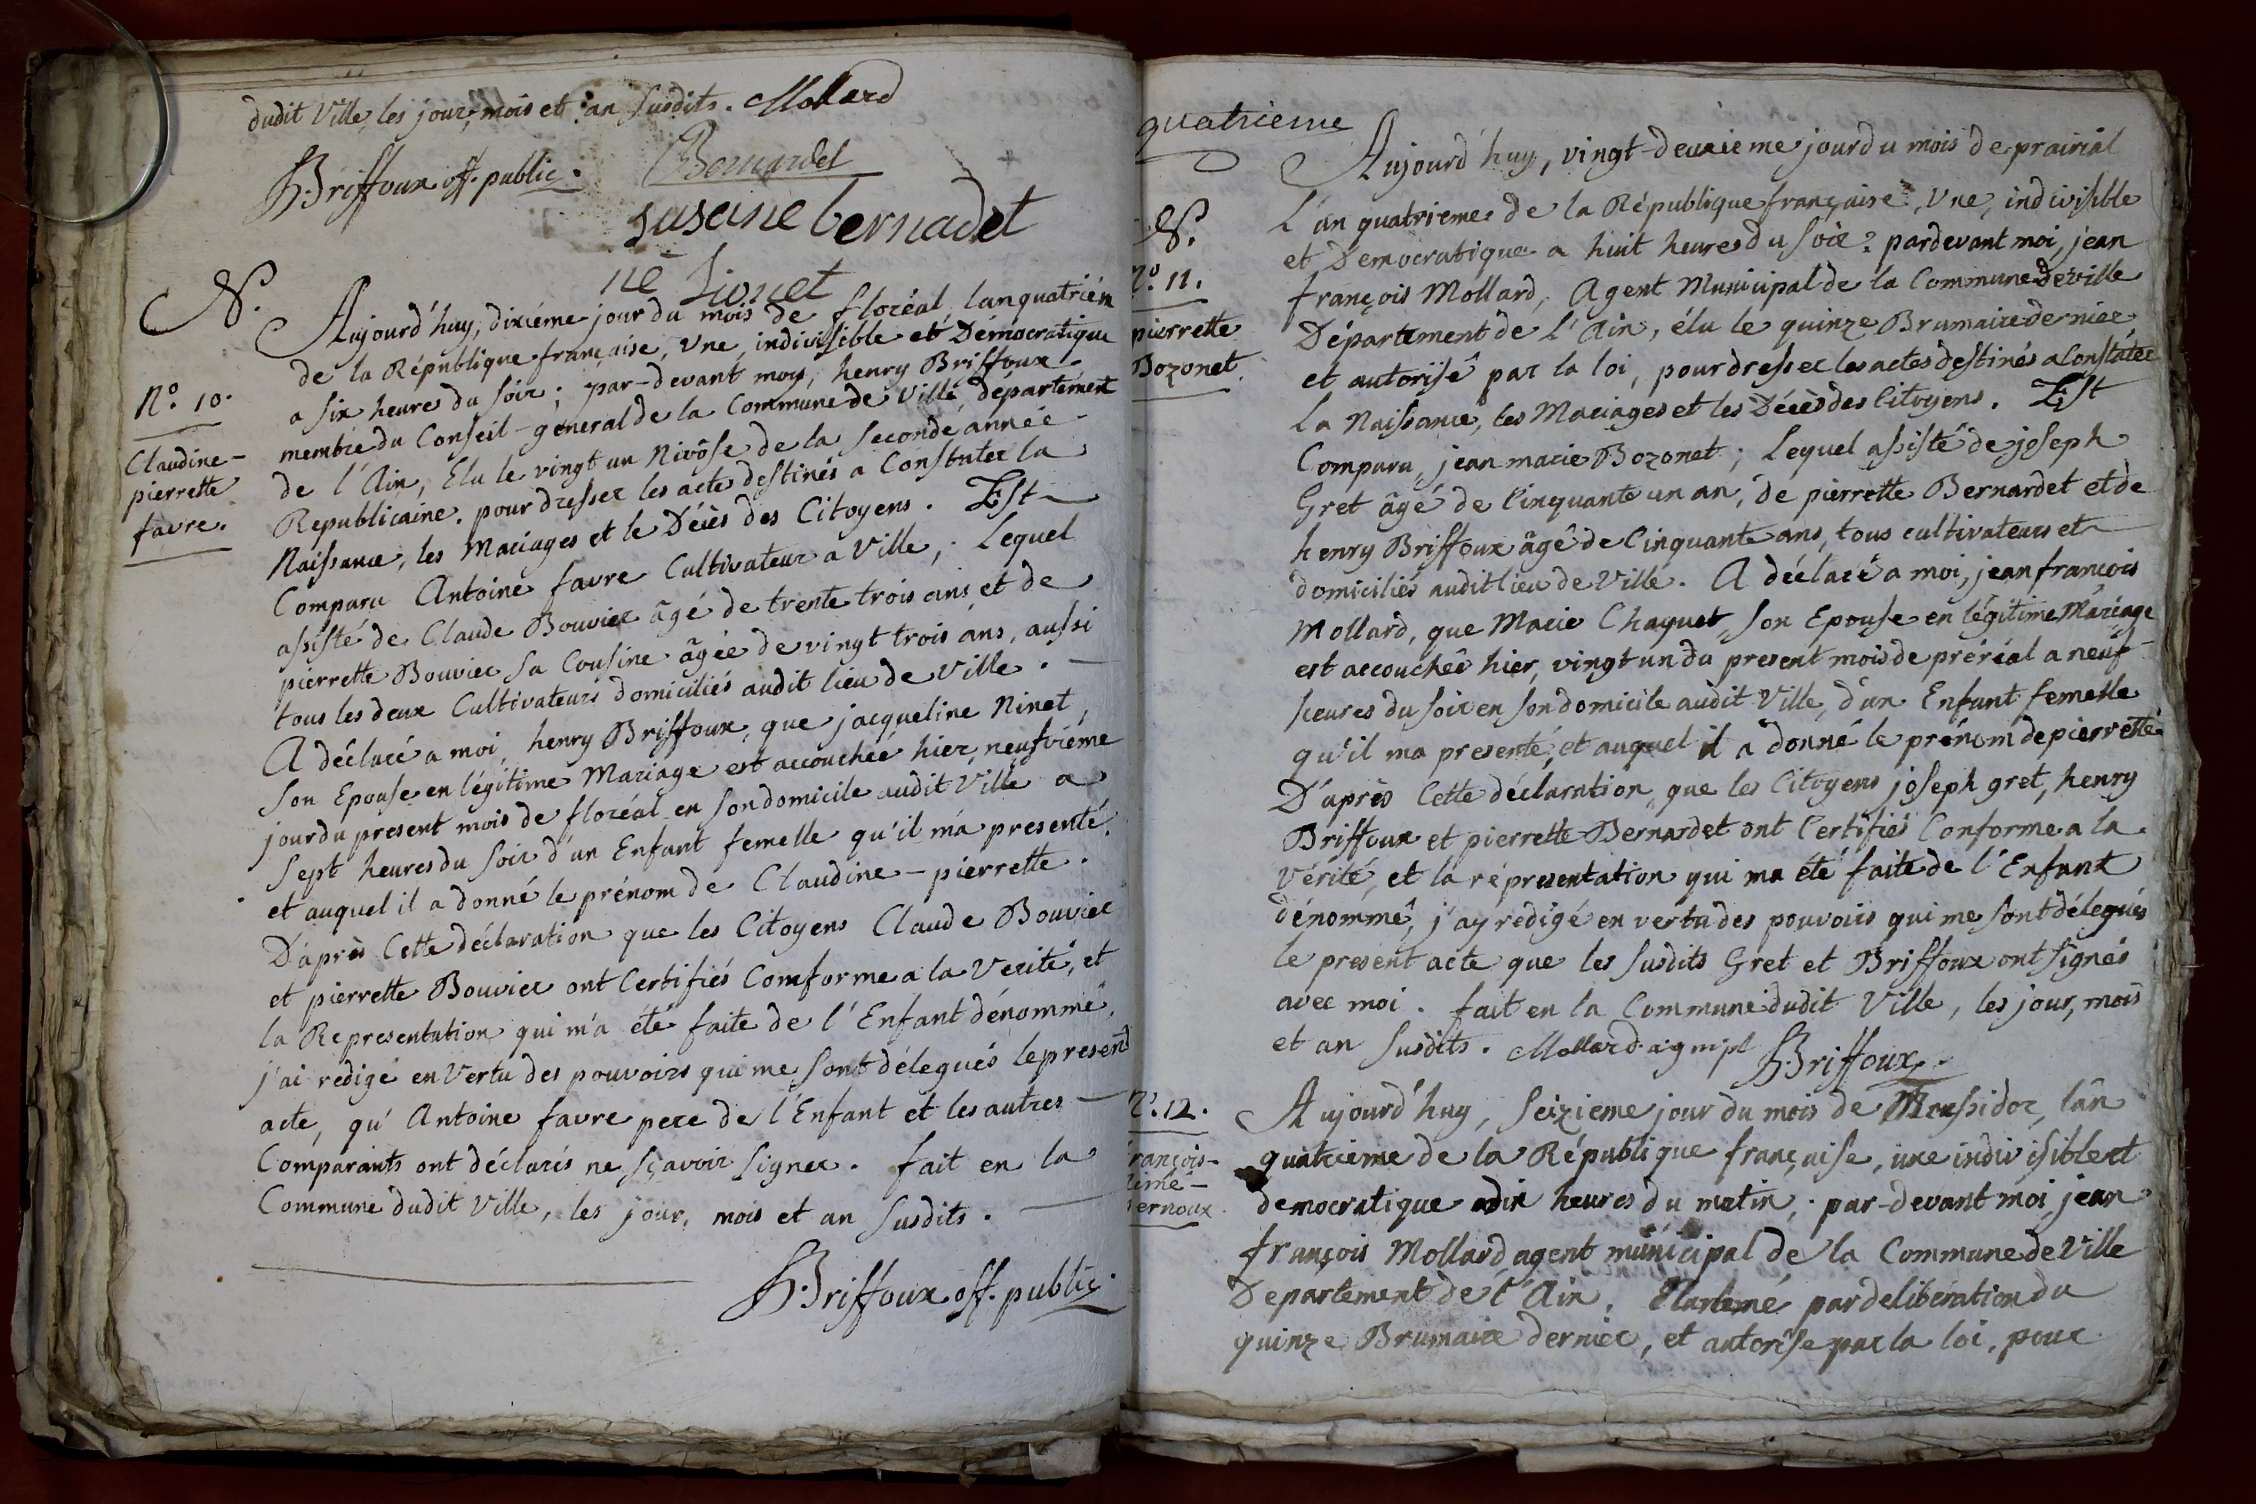 dudit Ville, les jour, mois et an susdits. Mollard
H. Briffoux off. public. Bernardet
susane bernadet
né
N.
N.° 10.
Claudine-
pierrette
favre.
Aujourd'huy, dixième jour du mois de floréal, lan quatrièm
de la République française, une, indivisible et Démocratique
a six heures du soir; par-devant moy, henry Briffoux
membre du Conseil-géneral de la Commune de Ville departement
de l'Ain, Elu le vingt un Nivôse de la seconde année
Republicaine. pour dresser les acte destinés a Constater la
Naissance, les Mariages et le Décès des Citoyens. Est
Comparu Antoine favre Cultivateur a Ville; Lequel
assisté de Claude Bouvier âgé de trente trois ans, et de
pierrette Bouvier sa Cousine âgée de vingt trois ans, aussi
tous les deux Cultivateurs domiciliés audit lieu de Ville.
A déclaré a moi, henry Briffoux, que jacqueline Ninet,
son Epouse en légitime Mariage est accouchée hier, neufvième
jour du present mois de floréal en son domicile audit Ville a
sept heures du soir d'un Enfant femelle qu'il m'a presenté.
et auquel il a donné le prénom de Claudine-pierrette.
D'après Cette déclaration que les Citoyens Claude Bouvier
et pierrette Bouvier ont Certifiés Comforme a la Verité, et
la Representation qui m'a été faite de l'Enfant dénommé,
j'ai redigé en Vertu des pouvoirs qui me sont délegués le present
acte, qu'Antoine favre pere de l'Enfant et les autres
Comparants ont déclarés ne sçavoir signer. fait en la
Commune dudit Ville, les jour, mois et an susdits.
H. Briffoux off. public.
quatrième
N.
N.° 11.
pierrette
Bozonet.
Aujourd'huy, vingt-deuxième jour du mois de prairial
L'an quatrieme de la République française, une, indivisible
et Democratique a huit heures du soir: pardevant moi, jean
françois Mollard, Agent Municipal de la Commune de Ville
Département de l'Ain, élu le quinze Brumaire dernier
et autorisé par la loi, pour dresser les actes destinés a Constater
La Naissance, les Mariages et les Décès des Citoyens. Est
Comparu, jean marie Bozonet; Lequel assisté de joseph
Gret âgé de Cinquante un an, de pierrette Bernardet et de
henry Briffoux âgé de Cinquante ans, tous cultivateurs et
domiciliés audit lieu de Ville. A déclaré a moi, jean françois
Mollard, que Marie Chaquet, son Epouse en légitime Mariage
est accouchée hier, vingt un du present mois de préréal a neuf
heures du soir en son domicile audit Ville, d'un Enfant femelle
qu'il ma presenté, et auquel il a donné le prénom de pierrette
D'après Cette déclaration, que les Citoyens joseph gret, henry
Briffoux et pierrette Bernardet ont Certifiés Conforme a la
Vérité, et la répresentation qui ma été faite de l'Enfant
dénommé, j'ay redigé en vertu des pouvoirs qui me sont délegués
le present acte que les susdits Gret et Briffoux ont signés
avec moi. fait en la Commune dudit Ville, les jour, mois
et an susdits. Mollard agmpl H. Briffoux
N.° 12.
françois-
ernoux
Aujourd'huy, seizieme jour du mois de Messidor, l'ân
quatrieme de la République française, une indivisible et
democratique a dix heures du matin; par-devant moi, jean
françois Mollard, agent municipal de la Commune de Ville
Departement de l'Ain. par deliberation du
quinze Brumaire dernier, et autorise par la loi, pour